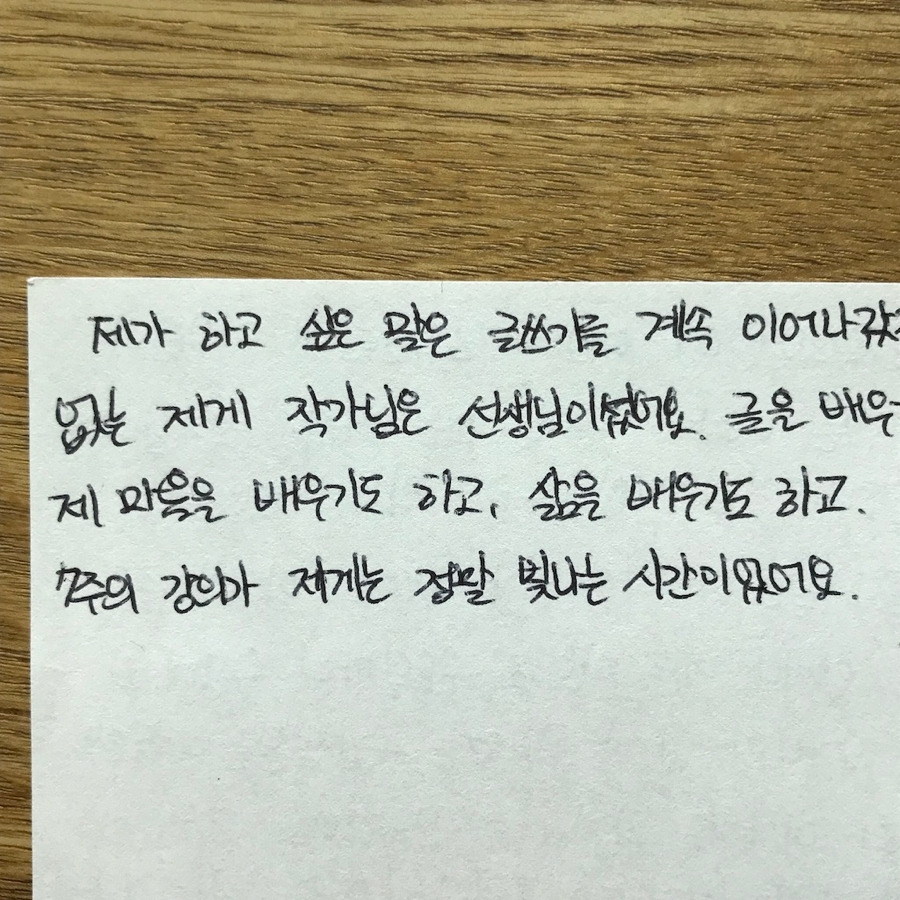 제가 하고 싶은 말은 글쓰기를 계속 이어나갔
없는 제게 작가님은 선생님이셨어요. 글을 배우
제 마음을 배우기도 하고, 삶을 배우기도 하고.
7주의 강의가 제게는 정말 빛나는 시간이었어요.